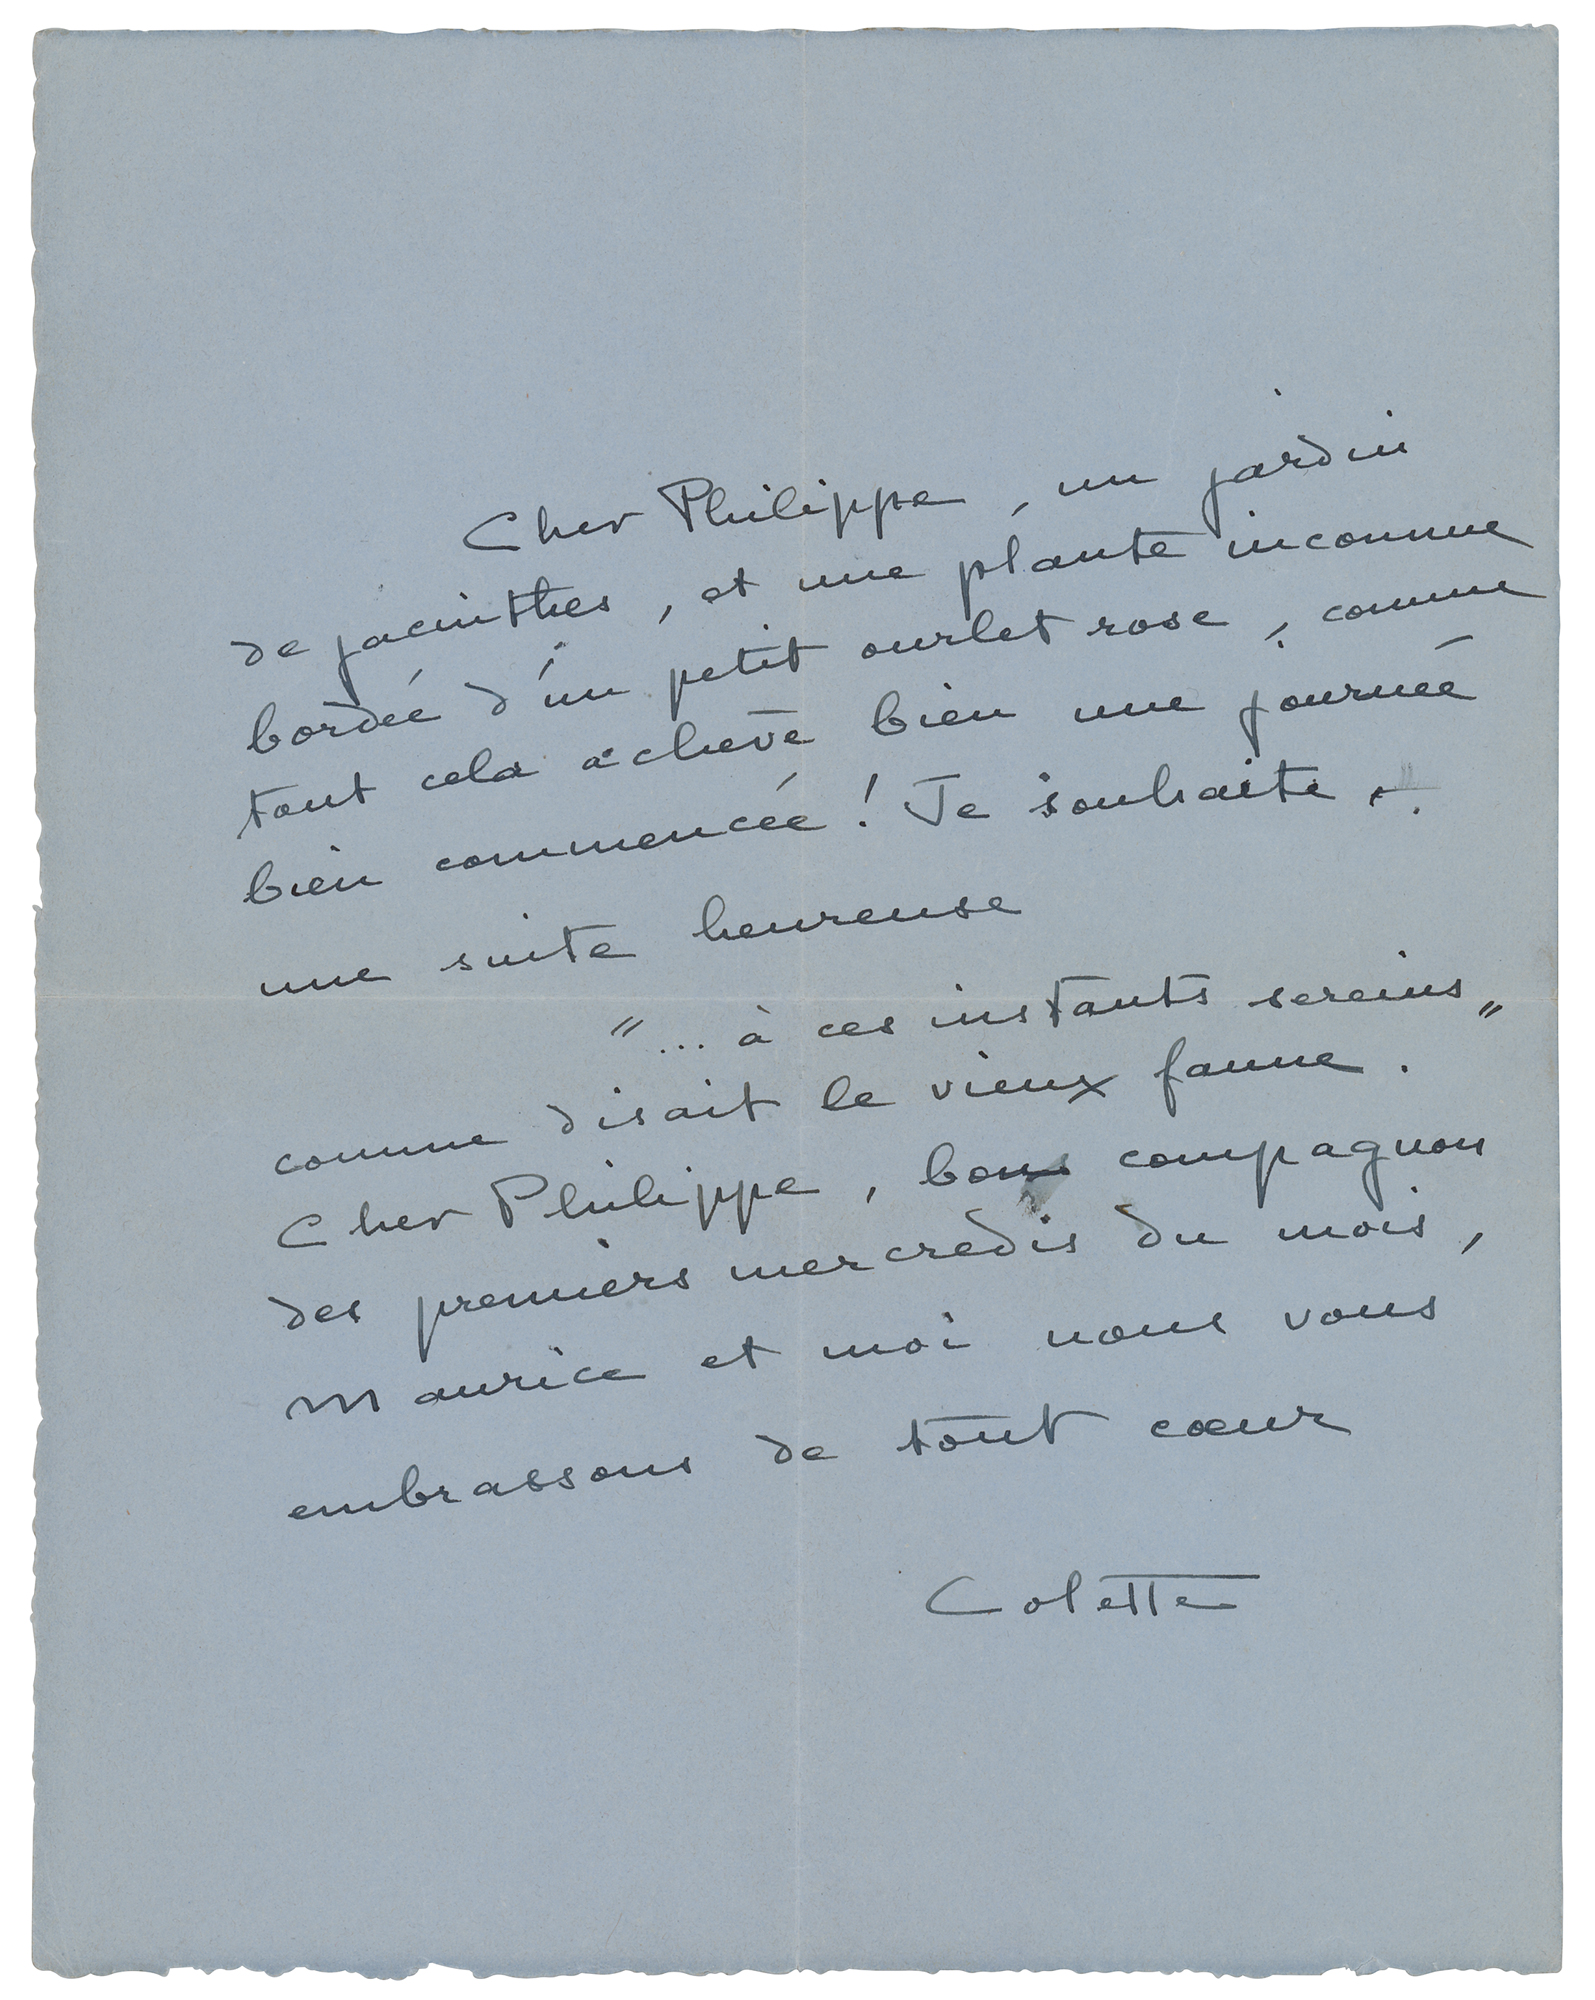 Cher Philippe, un jardin
de jacinthes, et une plante inconnue
bordée d'un petit ourlet rose, comme
tout cela achève bien une journée
bien commencée ! Je souhaite
une suite heureuse
"... à ces instants sereins"
comme disait le vieux faune.
Cher Philippe, bon compagnon
des premiers mercredis du mois,
Maurice et moi nous vous
embrassons de tout cœur
Colette